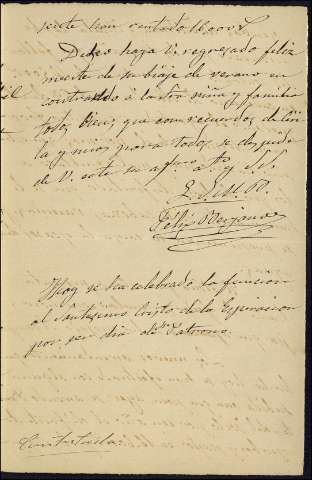 gente han contado 16.000
Deseo haya V. regresado feliz
mente de su biaje de verano en
contrando á la Sra niña y familia
todos bien; que con recuerdos de
la y mios para todos, se despide
de V. este su afmo. a.º y S.S.
Q. S. M. B.
Felix Berjano
Hoy se ha celebrado la funcion
al Santisimo Cristo de la Espiracion
por ser dia del Patrono.
Contestada